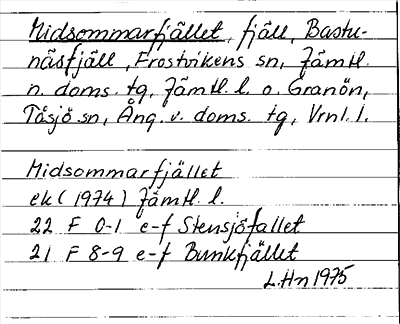 Midsommarfjället, fjäll, Bastu-
näsfjäll, Frostvikens sn, Jämtl.
n. doms. tg, Jämtl. l. o. Granön,
Tåsjö sn, Ång. v. doms. tg, Vrnl. l.
Midsommarfjället
ek (1974) Jämtl. l.
22 F 0-1 e-f Stensjöfallet
21 F 8-9 e-f Bunkfjället
L.Hn 1975